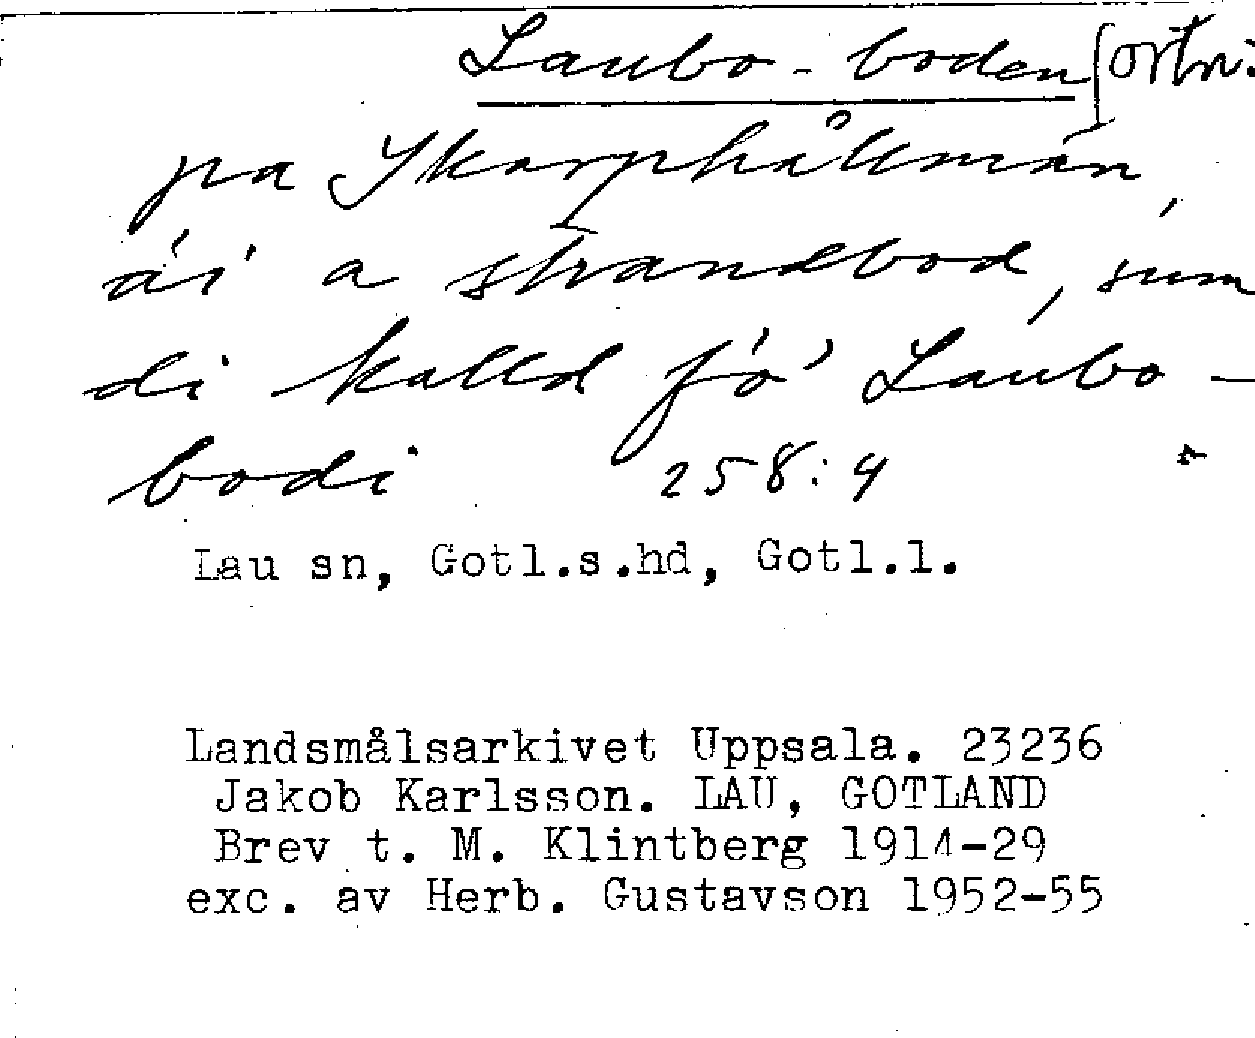 Laubo-boden [ortn.
pa Skarphållmán,
ái a strandbod, sum
di kalld fó' Laubo-
bodi 258:4
Lau sn, Gotl.s.hd, Gotl.l.
Landsmålsarkivet Uppsala. 23236
Jakob Karlsson. LAU, GOTLAND
Brev t. M. Klintberg 1914-29
exc. av Herb. Gustavson 1952-55